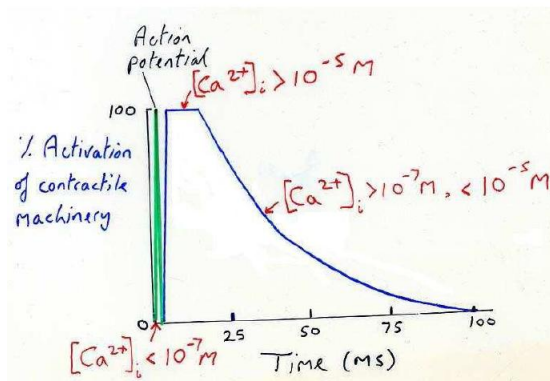 Action
potential
[Ca²⁺]ᵢ > 10⁻⁵ M
100
% Activation
of contractile
machinery
[Ca²⁺]ᵢ > 10⁻⁷ M, < 10⁻⁵ M
0
25
50
75
100
[Ca²⁺]ᵢ < 10⁻⁷ M
Time (ms)